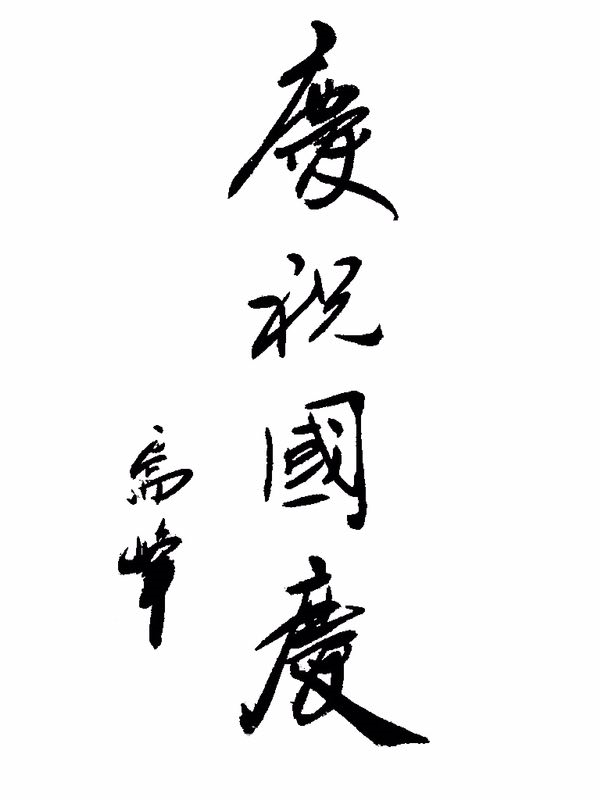 慶祝國慶
峰